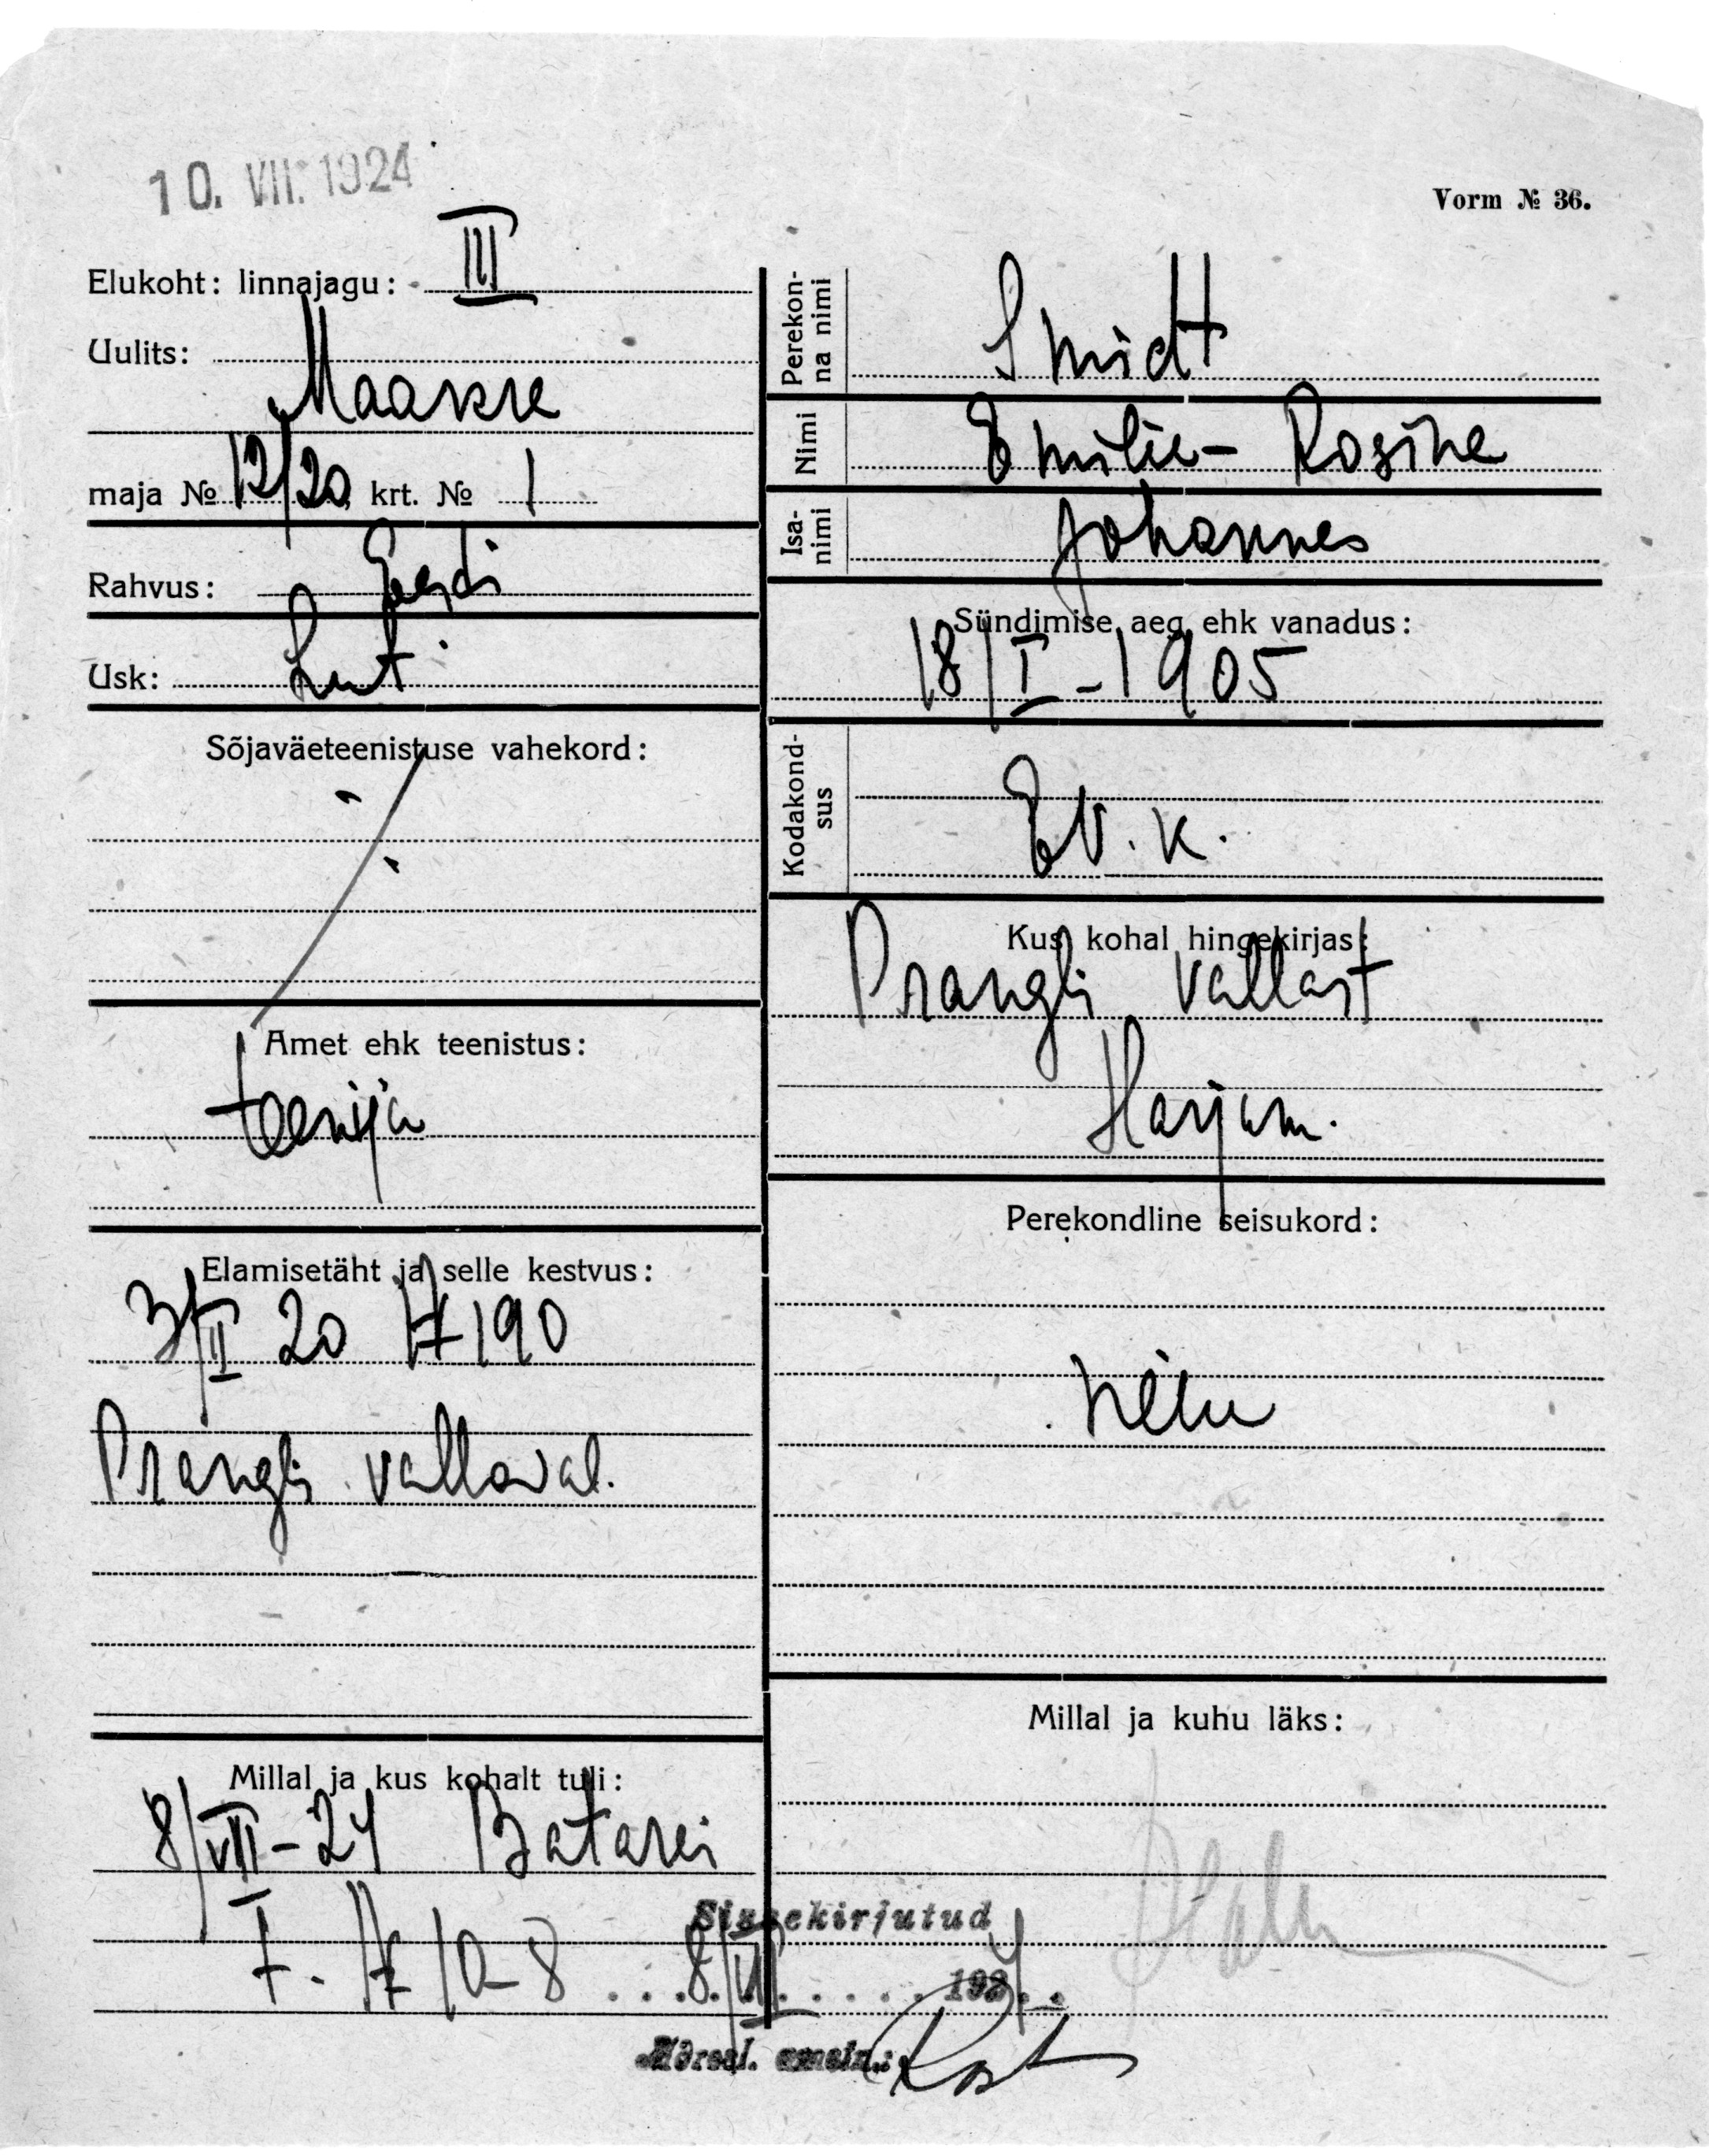 10. VII. 1924
Vorm № 36.
Elukoht: linnajagu: III
Uulits:
Maakre
maja № 12/20 krt. № 1
Rahvus: Eesti
Usk: Lut.
Sõjaväeteenistuse vahekord:
Amet ehk teenistus:
teenija
Elamisetäht ja selle kestvus:
3/II 20 № 190
Prangli vallaval.
Millal ja kus kohalt tuli:
8/VII-24 Batarei
№ 10-8
Perekonna nimi Smidt
Nimi Emilie- Rosine
Isanimi Johannes
Sündimise aeg ehk vanadus:
18/I-1905
Kodakondsus Ev. K.
Kus kohal hingekirjas:
Prangli vallast
Harjam.
Perekondline seisukord:
neiu
Millal ja kuhu läks:
Sissekirjutud
8/VII 1924